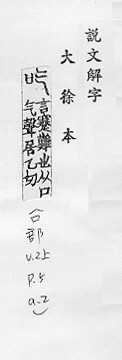 說文解字
大徐本
吃言蹇難也从口
气聲居乙切
(口部
V.2上
P.5
a-2)